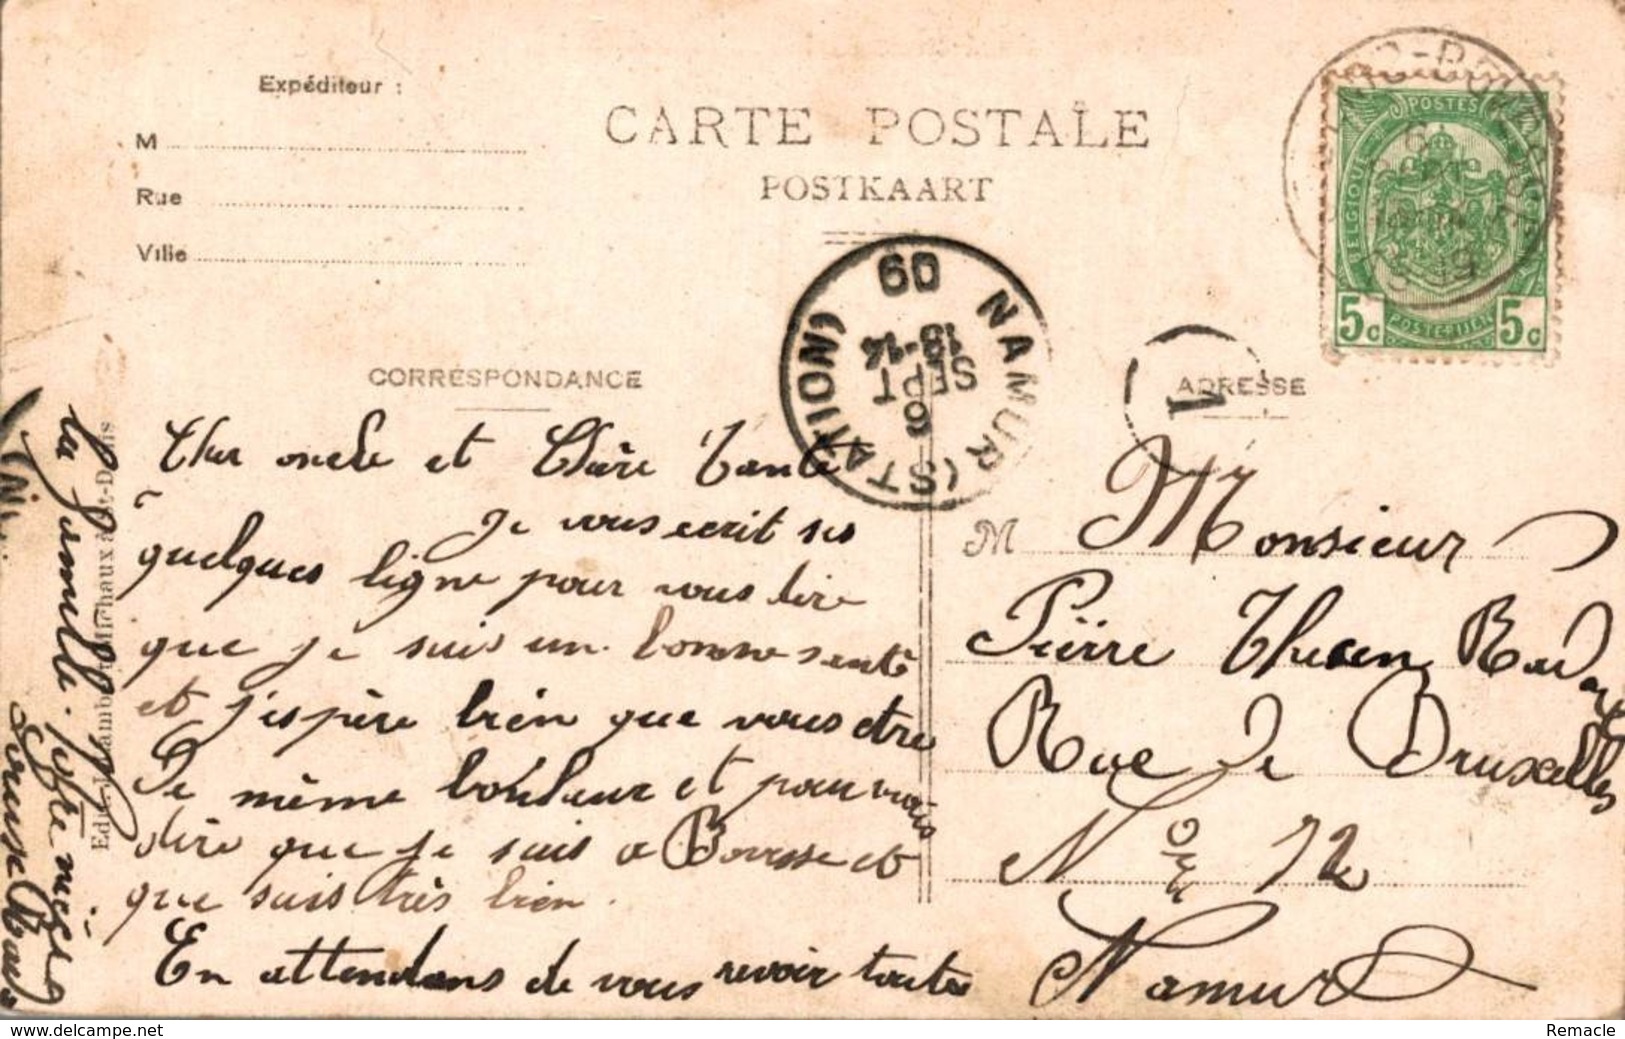 Expéditeur :
M
Rue
Ville
CARTE POSTALE
POSTKAART
CORRESPONDANCE
ADRESSE
POSTES
BELGIQUE
5c POSTERIJEN 5c
NAMUR (STATION)
09
1
Cher oncle et Chère Tante
Je vous ecrit ses
quelques ligne pour vous dire
que je suis un bonne santé
et j'espère bien que vous etre
De même bonheur et pour vous
dire que je suis a Bovesse et
que suis très bien.
En attendans de vous revoir toute
la famille. Votre niéce
Louise
M Monsieur
Pierre Rue de Bruxelles
No 72
Namur
www.delcampe.net
Remacle